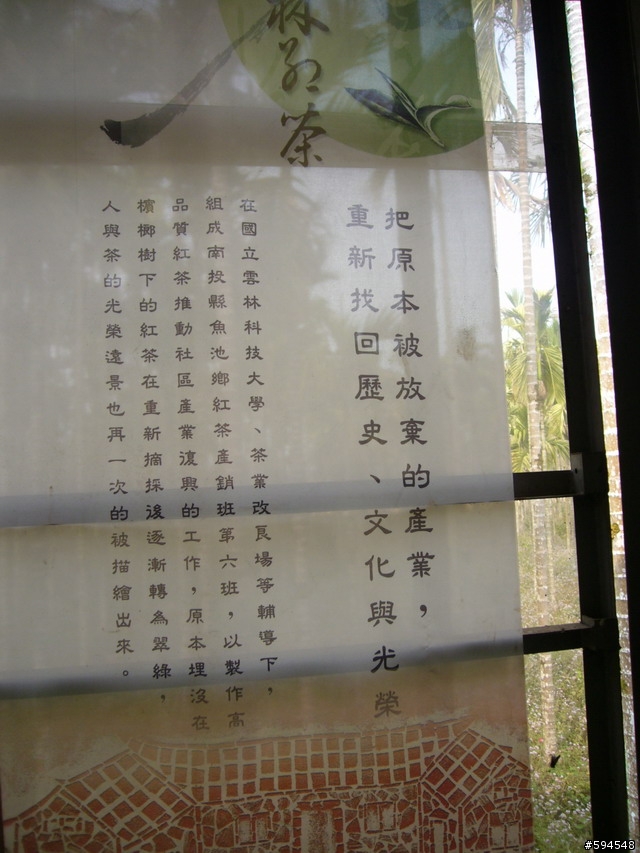 把原本被放棄的產業，
重新找回歷史、文化與光榮
在國立雲林科技大學、茶業改良場等輔導下，
組成南投縣魚池鄉紅茶產銷班第六班，以製作高
品質紅茶推動社區產業復興的工作，原本埋沒在
檳榔樹下的紅茶在重新摘採後逐漸轉為翠綠，
人與茶的光榮遠景也再一次的被描繪出來。
#594548